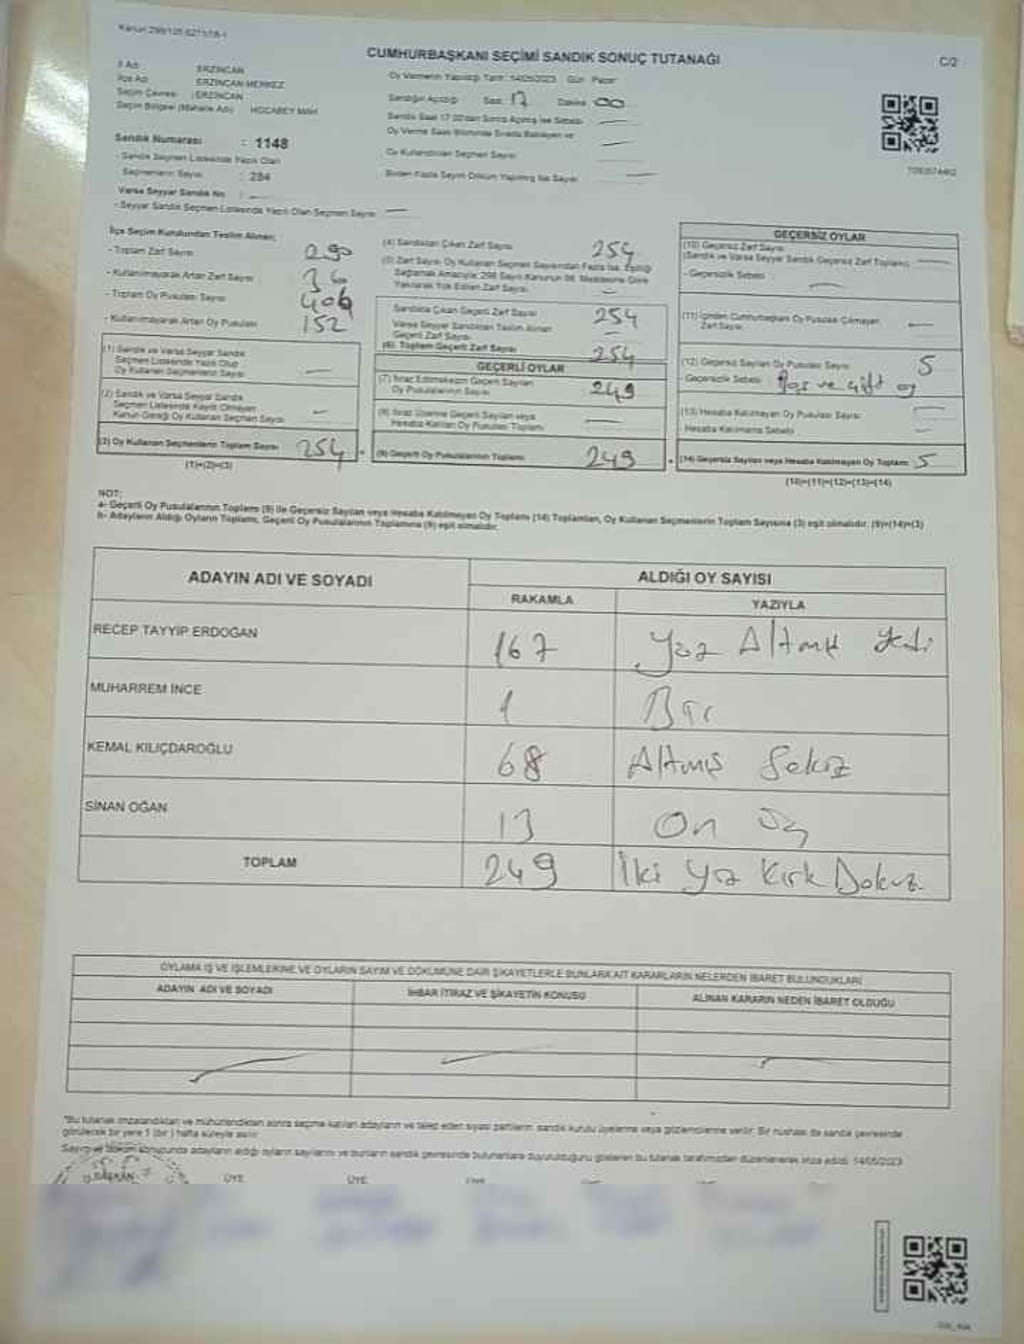 CUMHURBAŞKANI SEÇİMİ SANDIK SONUÇ TUTANAĞI
C/2
İl Adı : ERZİNCAN
İlçe Adı : ERZİNCAN MERKEZ
Seçim Çevresi : ERZİNCAN
Seçim Bölgesi (Mahalle Adı) : HOCABEY MAH
Oy Vermenin Yapıldığı Tarih : 14/05/2023 Gün : Pazar
Sandığın Açıldığı Saat : 17 Dakika : 00
Sandık Saat 17:00'dan Sonra Açılmış İse Sebebi
Sandık Numarası : 1148
- Sandık Seçmen Listesinde Yazılı Olan
Seçmenlerin Sayısı : 284
Varsa Seyyar Sandık No :
- Seyyar Sandık Seçmen Listesinde Yazılı Olan Seçmen Sayısı
Oy Kullandırılan Seçmen Sayısı
Birden Fazla Sayım Döküm Yapılmış İse Sayısı
İlçe Seçim Kurulundan Teslim Alınan;
- Toplam Zarf Sayısı 290
- Kullanılmayarak Artan Zarf Sayısı 36
- Toplam Oy Pusulası Sayısı 406
- Kullanılmayarak Artan Oy Pusulası 152
(1) Sandık ve Varsa Seyyar Sandık
Seçmen Listesinde Yazılı Olup
Oy Kullanan Seçmenlerin Sayısı
(2) Sandık ve Varsa Seyyar Sandık
Seçmen Listesinde Kayıtlı Olmayan
Kanun Gereği Oy Kullanan Seçmen Sayısı
(3) Oy Kullanan Seçmenlerin Toplam Sayısı 254
(1)+(2)=(3)
(4) Sandıktan Çıkan Zarf Sayısı 254
(5) Zarf Sayısı Oy Kullanan Seçmen Sayısından Fazla İse, Eşitliği
Sağlamak Amacıyla 298 Sayılı Kanunun 98. Maddesine Göre
Yakılarak Yok Edilen Zarf Sayısı
Sandıkta Çıkan Geçerli Zarf Sayısı 254
Varsa Seyyar Sandıktan Teslim Alınan
Geçerli Zarf Sayısı
(6) Toplam Geçerli Zarf Sayısı 254
GEÇERLİ OYLAR
(7) İtiraz Edilmeksizin Geçerli Sayılan
Oy Pusulalarının Sayısı 249
(8) İtiraz Üzerine Geçerli Sayılan veya
Hesaba Katılan Oy Pusulası Toplamı
(9) Geçerli Oy Pusulalarının Toplamı 249
GEÇERSİZ OYLAR
(10) Geçersiz Zarf Sayısı
(Sandık ve Varsa Seyyar Sandık Geçersiz Zarf Toplamı)
- Geçersizlik Sebebi
(11) İçinden Cumhurbaşkanı Oy Pusulası Çıkmayan
Zarf Sayısı
(12) Geçersiz Sayılan Oy Pusulası Sayısı 5
- Geçersizlik Sebebi Boş ve çift oy
(13) Hesaba Katılmayan Oy Pusulası Sayısı
Hesaba Katılmama Sebebi
(14) Geçersiz Sayılan veya Hesaba Katılmayan Oy Toplamı 5
(10)+(11)+(12)+(13)=(14)
NOT:
a- Geçerli Oy Pusulalarının Toplamı (9) ile Geçersiz Sayılan veya Hesaba Katılmayan Oy Toplamı (14) Toplamları, Oy Kullanan Seçmenlerin Toplam Sayısına (3) eşit olmalıdır. (9)+(14)=(3)
b- Adayların Aldığı Oyların Toplamı, Geçerli Oy Pusulalarının Toplamına (9) eşit olmalıdır.
ADAYIN ADI VE SOYADI ALDIĞI OY SAYISI
RAKAMLA YAZIYLA
RECEP TAYYİP ERDOĞAN 167 Yüz Altmış Yedi
MUHARREM İNCE 1 Bir
KEMAL KILIÇDAROĞLU 68 Altmış Sekiz
SİNAN OĞAN 13 On üç
TOPLAM 249 İki Yüz Kırk Dokuz
OYLAMA İŞ VE İŞLEMLERİNE VE OYLARIN SAYIM VE DÖKÜMÜNE DAİR ŞİKAYETLERLE BUNLARA AİT KARARLARIN NELERDEN İBARET BULUNDUKLARI
ADAYIN ADI VE SOYADI İHBAR İTİRAZ VE ŞİKAYETİN KONUSU ALINAN KARARIN NEDEN İBARET OLDUĞU
*Bu tutanak imzalandıktan ve mühürlendikten sonra seçime katılan adayların ve talep eden siyasi partilerin sandık kurulu üyelerine veya gözlemcilerine verilir. Bir nüshası da sandık çevresinde
görülecek bir yere 1 (bir) hafta süreyle asılır.
Sayım ve döküm sonucunda adayların aldığı oyların sayılarını ve bunların sandık çevresinde bulunanlara duyurulduğunu gösteren bu tutanak tarafımızdan düzenlenerek imza edildi. 14/05/2023
BAŞKAN ÜYE ÜYE